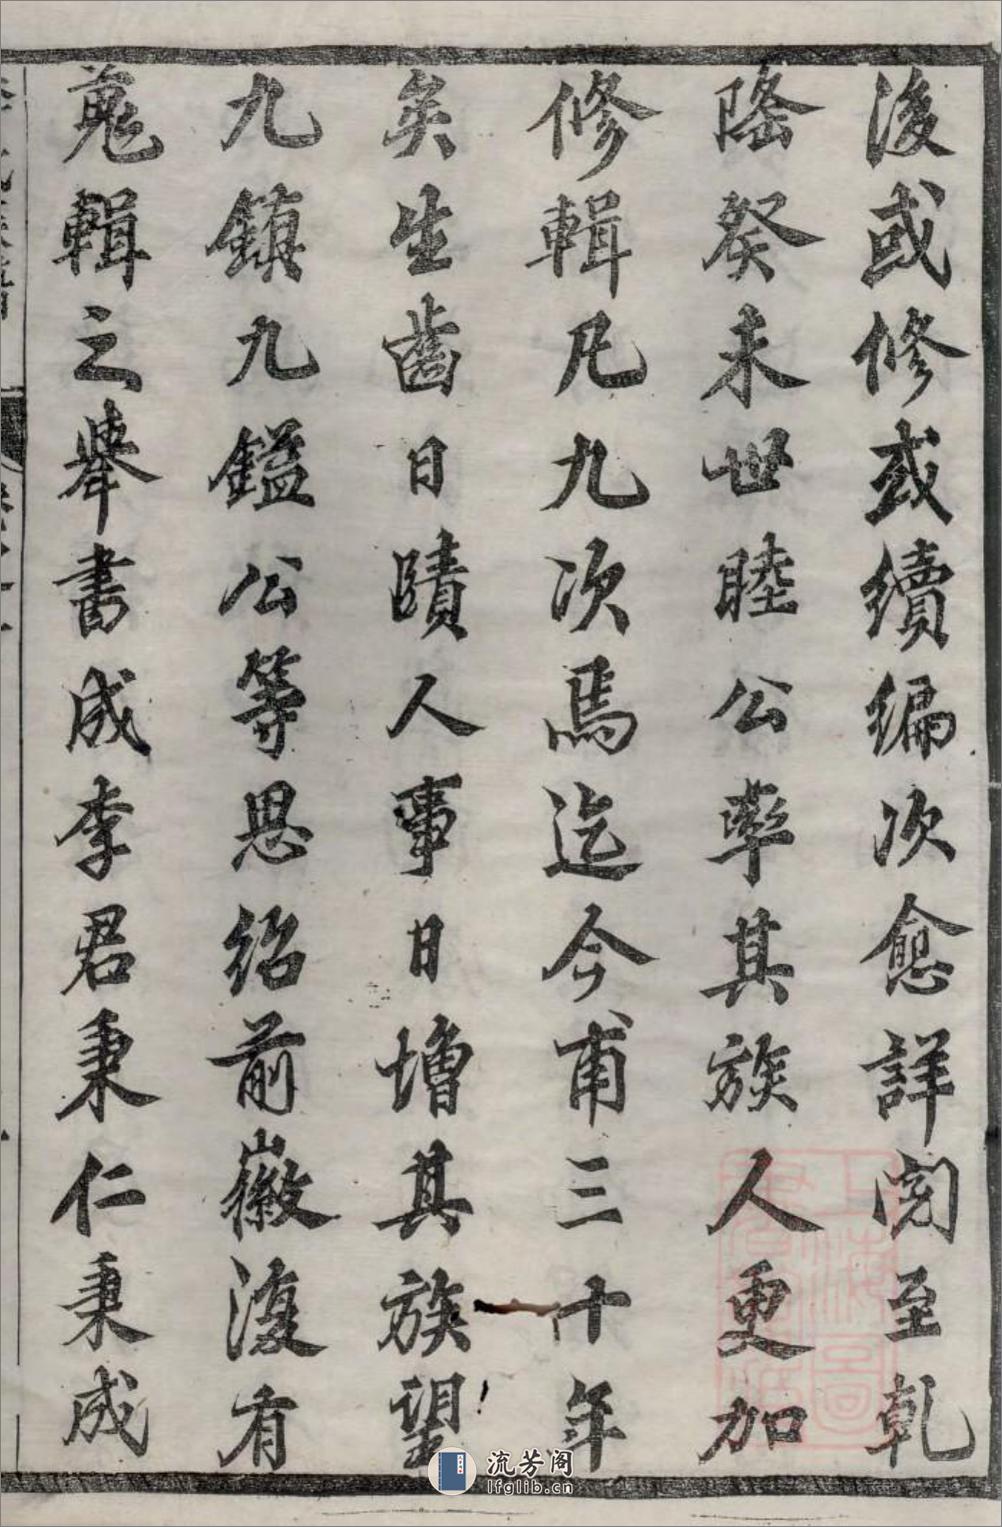 後或修或續編次愈詳閱至乾
隆癸未世睦公率其族人更加
修輯凡九次焉迄今甫三十年
矣生齒日賾人事日增其族望
九鎮九鎰公等思紹前徽復有
蒐輯之舉書成李君秉仁秉成
流芳阁
lfglib.cn